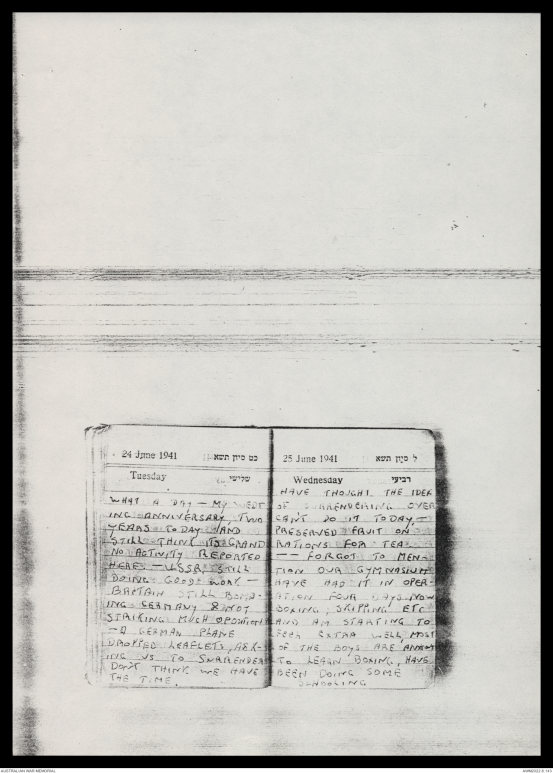 24 June 1941 כט סיון תשא
Tuesday שלישי
WHAT A DAY — MY WEDD
ING ANNIVERSARY, TWO
YEARS TODAY AND
STILL THINK ITS GRAND
NO ACTIVITY REPORTED
HERE. — USSR STILL
DOING GOOD WORK —
BRITAIN STILL BOMB-
ING GERMANY & NOT
STRIKING MUCH OPOSITION
— A GERMAN PLANE
DROPPED LEAFLETS, ASK-
ING US TO SURRENDER
DON'T THINK WE HAVE
THE TIME.
25 June 1941 ל סיון תשא
Wednesday רביעי
HAVE THOUGHT THE IDEA
OF SURRENDERING OVER
CAN'T DO IT TODAY, —
PRESERVED FRUIT ON
RATIONS FOR TEA
— — FORGOT TO MEN-
TION OUR GYMNASIUM
HAVE HAD IT IN OPER-
ATION FOUR DAYS NOW
BOXING, SKIPPING ETC
AND AM STARTING TO
FEEL EXTRA WELL, MOST
OF THE BOYS ARE
TO LEARN BOXING, HAVE
BEEN DOING SOME
SCHOOLING
AUSTRALIAN WAR MEMORIAL